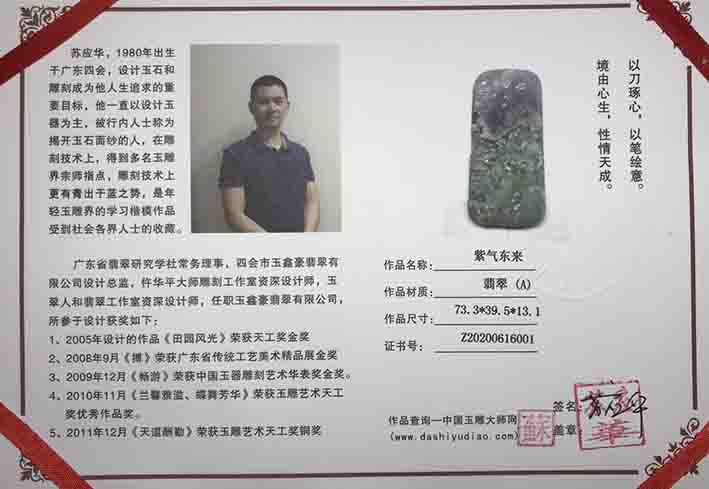 苏应华，1980年出生
于广东四会，设计玉石和
雕刻成为他人生追求的重
要目标，他一直以设计玉
器为主，被行内人士称为
揭开玉石面纱的人，在雕
刻技术上，得到多名玉雕
界宗师指点，雕刻技术上
更有青出于蓝之势，是年
轻玉雕界的学习楷模作品
受到社会各界人士的收藏。
以刀琢心，以笔绘意。
境由心生，性情天成。
广东省翡翠研究学社常务理事，四会市玉鑫豪翡翠有
限公司设计总监，仵华平大师雕刻工作室资深设计师，玉
翠人和翡翠工作室资深设计师，任职玉鑫豪翡翠有限公司，
所参于设计获奖如下：
1、2005年设计的作品《田园风光》荣获天工奖金奖
2、2008年9月《搏》荣获广东省传统工艺美术精品展金奖
3、2009年12月《畅游》荣获中国玉器雕刻艺术华表奖金奖。
4、2010年11月《兰馨雅滥、蝶舞芳华》荣获玉雕艺术天工
奖优秀作品奖。
5、2011年12月《天道酬勤》荣获玉雕艺术天工奖铜奖
作品名称：紫气东来
作品材质：翡翠（A）
作品尺寸：73.3*39.5*13.1
证书号：Z20200616001
作品查询一中国玉雕大师网
(www.dashiyudiao.com)
蘇
签名
盖章
苏应华